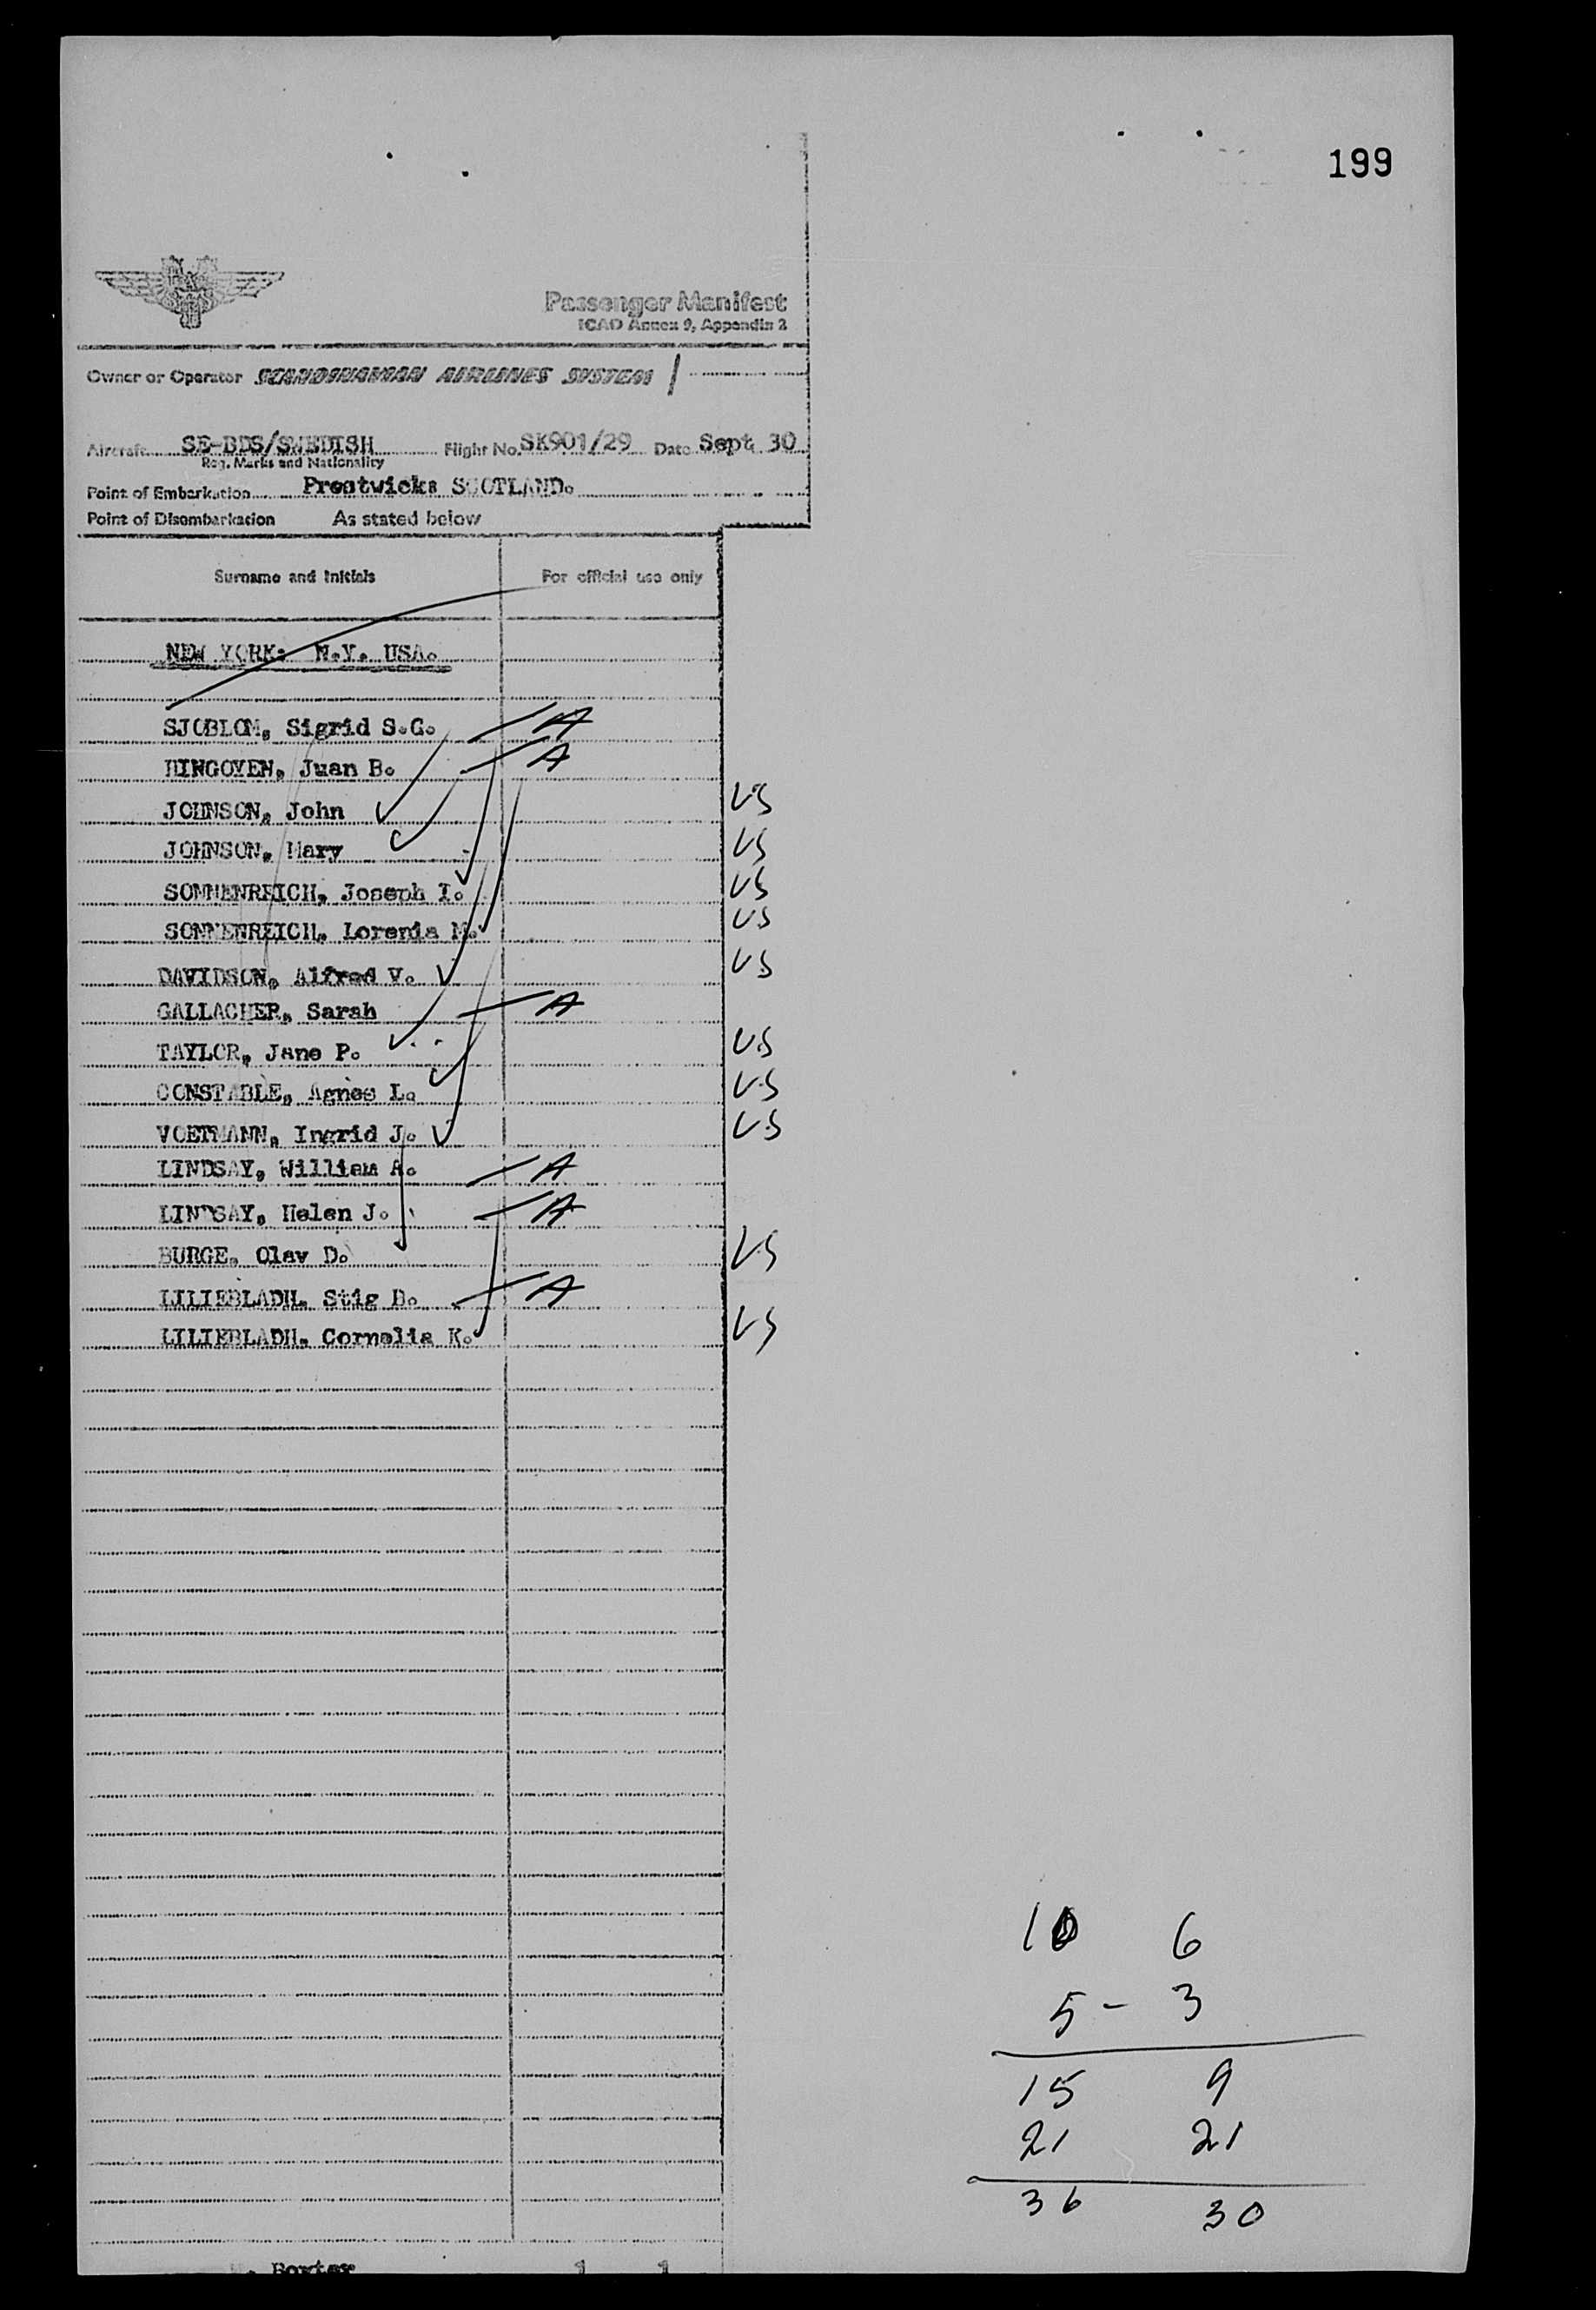 199
Passenger Manifest
ICAO Annex 9, Appendix 2
Owner or Operator SCANDINAVIAN AIRLINES SYSTEM
Aircraft SE-BDS/SWEDISH Flight No. SK901/29 Date Sept 30
Reg. Marks and Nationality
Point of Embarkation Prestwick: SCOTLAND.
Point of Disembarkation As stated below
Surname and Initials For official use only
NEW YORK: N.Y. USA.
SJOBLOM, Sigrid S.G. A
HINGOYEN, Juan B. A
JOHNSON, John US
JOHNSON, Mary US
SONNENREICH, Joseph I. US
SONNENREICH, Lorenia M. US
DAVIDSON, Alfred V. US
GALLAGHER, Sarah A
TAYLOR, Jane P. US
CONSTABLE, Agnes L. US
VOETMANN, Ingrid J. US
LINDSAY, William A. A
LINDSAY, Helen J. A
BURGE, Olav D. US
LILIEBLADH, Stig B. A
LILIEBLADH, Cornelia K. US
10 6
5 - 3
15 9
21 21
36 30
1 1